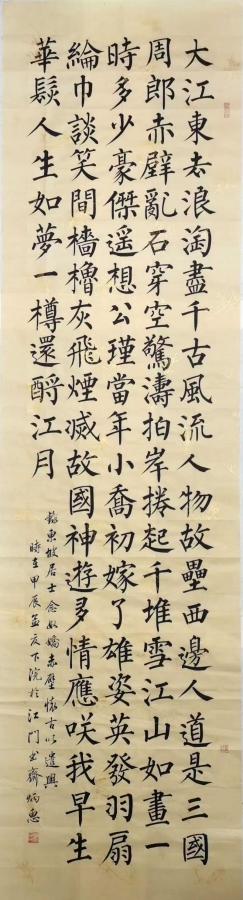 大江東去浪淘盡千古風流人物故壘西邊人道是三國
周郎赤壁亂石穿空驚濤拍岸捲起千堆雪江山如畫一
時多少豪傑遥想公瑾當年小喬初嫁了雄姿英發羽扇
綸巾談笑間檣櫓灰飛煙滅故國神遊多情應咲我早生
華髮人生如夢一樽還酹江月
錄東坡居士念奴嬌赤壁懷古以遣興
時在甲辰孟夏下浣於江門書齋炳惠